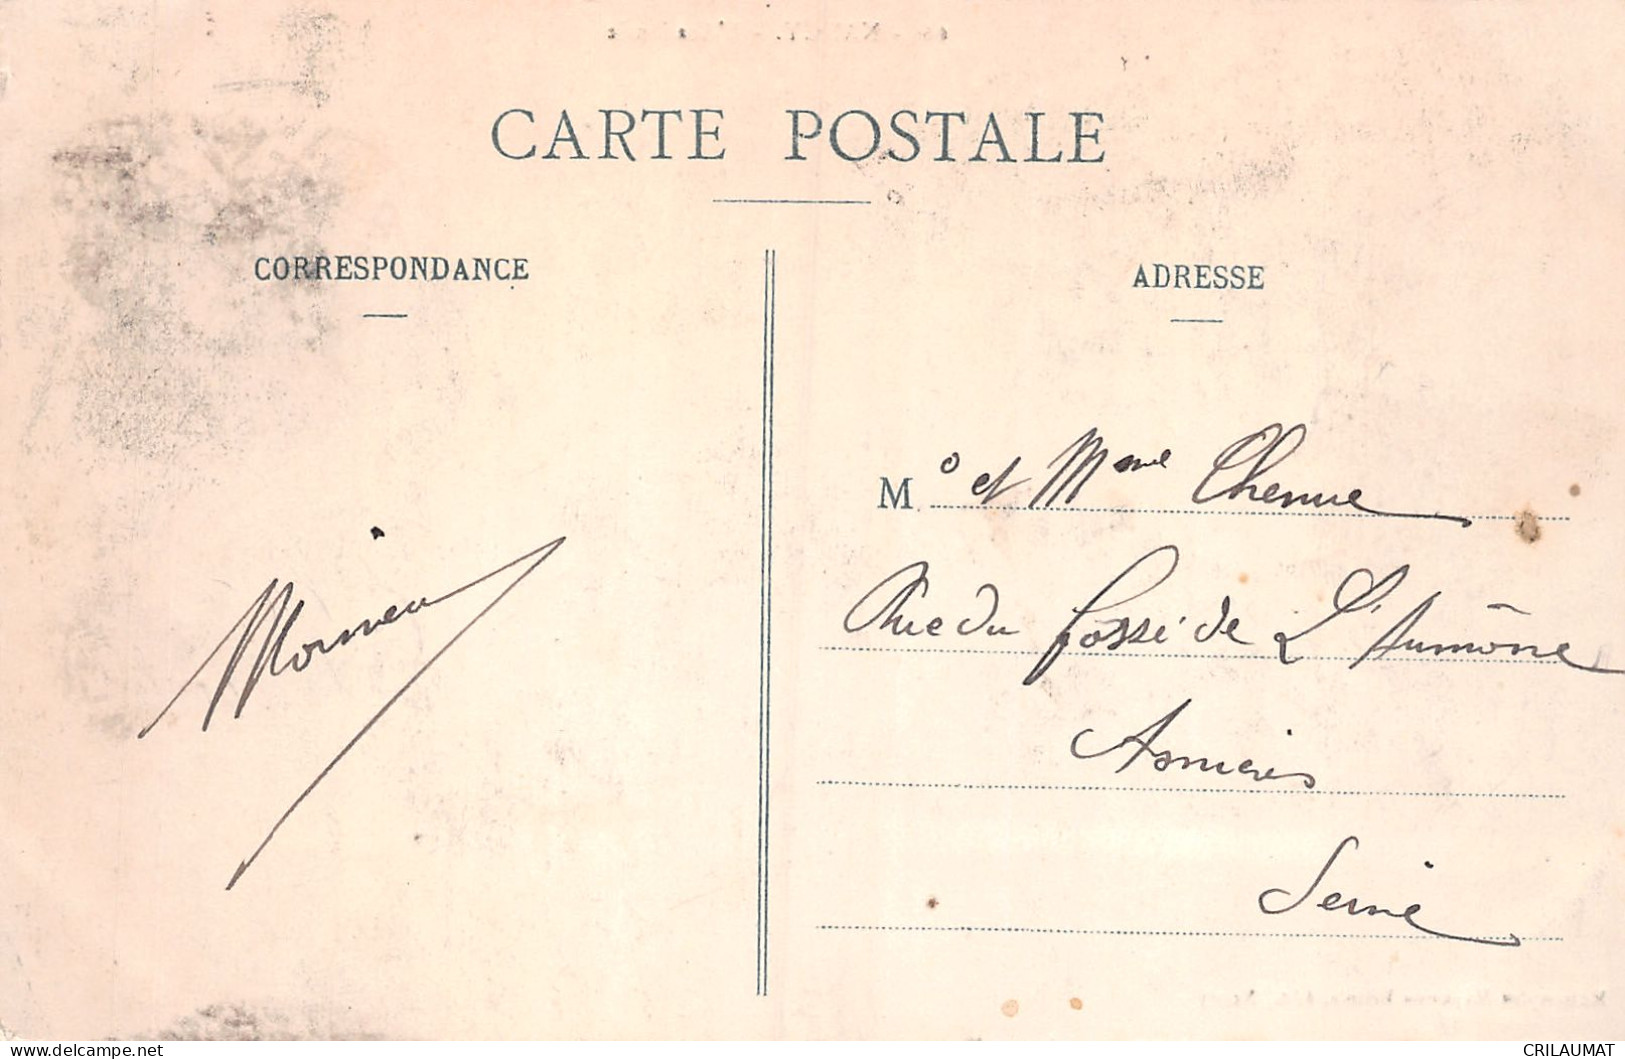 CARTE POSTALE
CORRESPONDANCE
ADRESSE
M r et Mme Chenue
Rue du fossé de L'Aumône
Asnières
Seine
Morineau
CRILAUMAT